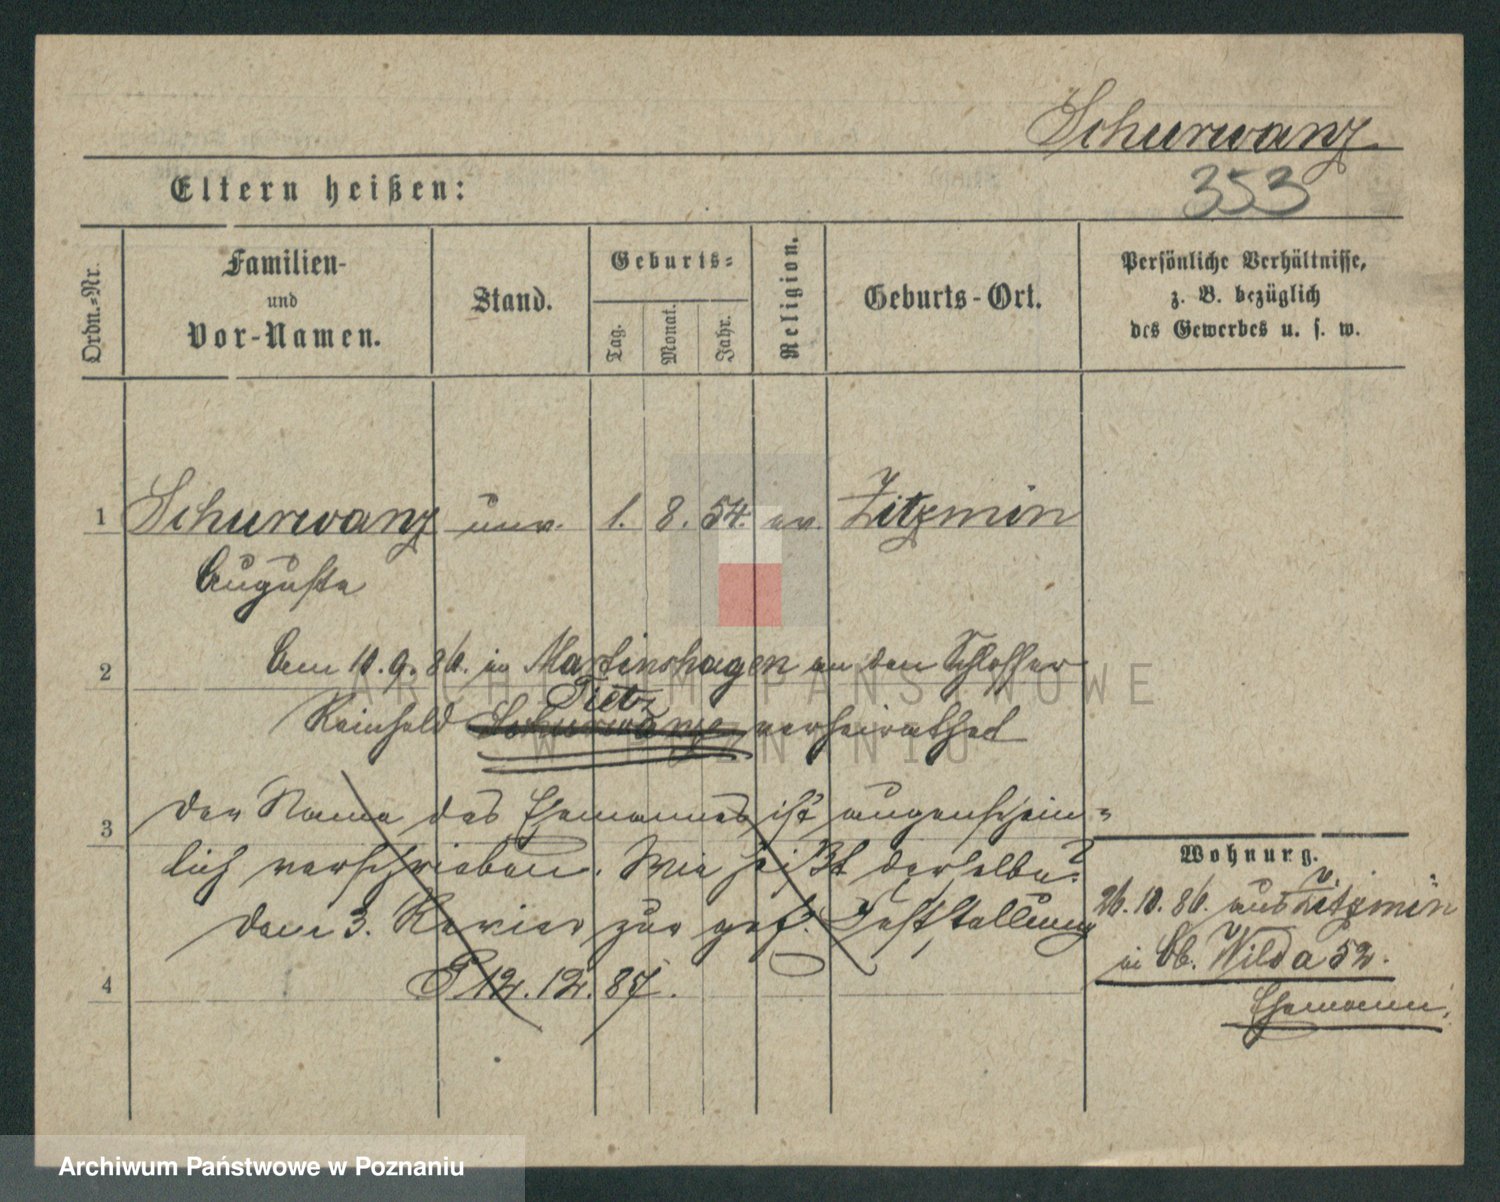 Schurwanz
353
Eltern heißen:
Ordn.-Nr.
Familien-
und
Vor-Namen.
Stand.
Geburts-
Tag.
Monat.
Jahr.
Religion.
Geburts-Ort.
Persönliche Verhältnisse,
z. B. bezüglich
des Gewerbes u. s. w.
1 Schurwanz unv. 1. 8. 54. ev. Zitzmin
Auguste
2 Am 10.9.86. in Martinshagen an den Schlosser
Tietz
Reinhold Schurwanz verheirathet
3 Der Name des Ehemannes ist augenschein-
lich verschrieben. Wie heißt derselbe?
Dem 3. Revier zur gef. Feststellung
4 12.12.87.
Wohnung.
26.10.86. aus Zitzmin
in Ob. Wilda 52.
Ehemann.
ARCHIWUM PAŃSTWOWE
W POZNANIU
Archiwum Państwowe w Poznaniu